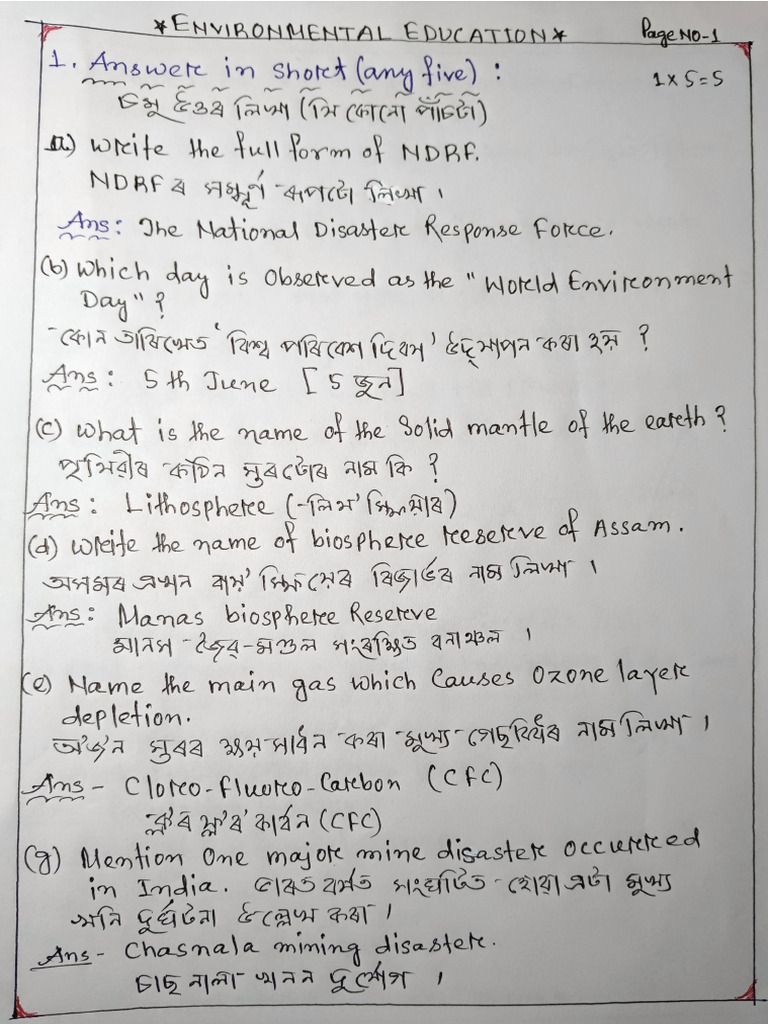 *ENVIRONMENTAL EDUCATION*
Page NO-1
1. Answer in short (any five) :
1 x 5 = 5
চমু উত্তৰ লিখা (যি কোনো পাঁচটা)
a) Write the full form of NDRF.
NDRF ৰ সম্পূৰ্ণ ৰূপটো লিখা ।
Ans: The National Disaster Response Force.
(b) Which day is observed as the "World Environment
Day" ?
কোন তাৰিখে 'বিশ্ব পৰিবেশ দিবস' উদ্‌যাপন কৰা হয় ?
Ans : 5th June [5 জুন]
(c) What is the name of the Solid mantle of the earth ?
পৃথিৱীৰ কঠিন স্তৰটোৰ নাম কি ?
Ans : Lithosphere (লিথ'স্ফিয়াৰ)
(d) Write the name of biosphere reserve of Assam.
অসমৰ এখন বায়'স্ফিয়েৰ ৰিজাৰ্ভৰ নাম লিখা ।
Ans : Manas biosphere Reserve
মানস জৈৱ-মণ্ডল সংৰক্ষিত বনাঞ্চল ।
(e) Name the main gas which causes Ozone layer
depletion.
অ'জ'ন স্তৰৰ ক্ষয়সাধন কৰা মুখ্য গেছবিধৰ নাম লিখা ।
Ans - Cloro-fluoro-Carbon (CFC)
ক্ল'ৰ'ফ্ল'ৰ'কাৰ্বন (CFC)
(g) Mention One major mine disaster occurred
in India. ভাৰতবৰ্ষত সংঘটিত হোৱা এটা মুখ্য
খনি দুৰ্ঘটনা উল্লেখ কৰা ।
Ans - Chasnala mining disaster.
চাছনালা খনন দুৰ্যোগ ।